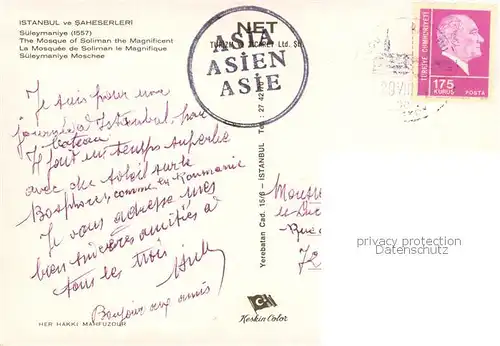 ISTANBUL ve ŞAHESERLERİ
Süleymaniye (1557)
The Mosque of Soliman the Magnificent
La Mosquée de Soliman le Magnifique
Süleymaniye Moschee
NET
TURİZM TİCARET Ltd. Şti
ASIA
ASIEN
ASIE
TÜRKİYE CUMHURİYETİ
175
KURUŞ
POSTA
Je suis pour une
journée à Istanbul par
bateau
Il fait un temps superbe
avec du soleil sur le
Bosphore, comme en Roumanie
Je vous adresse mes
bien sincères amitiés à
tous les trois
Bonjour aux amis
Yerebatan Cad. 15/6 - İSTANBUL Tel : 27 42
Rue
72
privacy protection
service
HER HAKKI MAHFUZDUR
Keskin Color